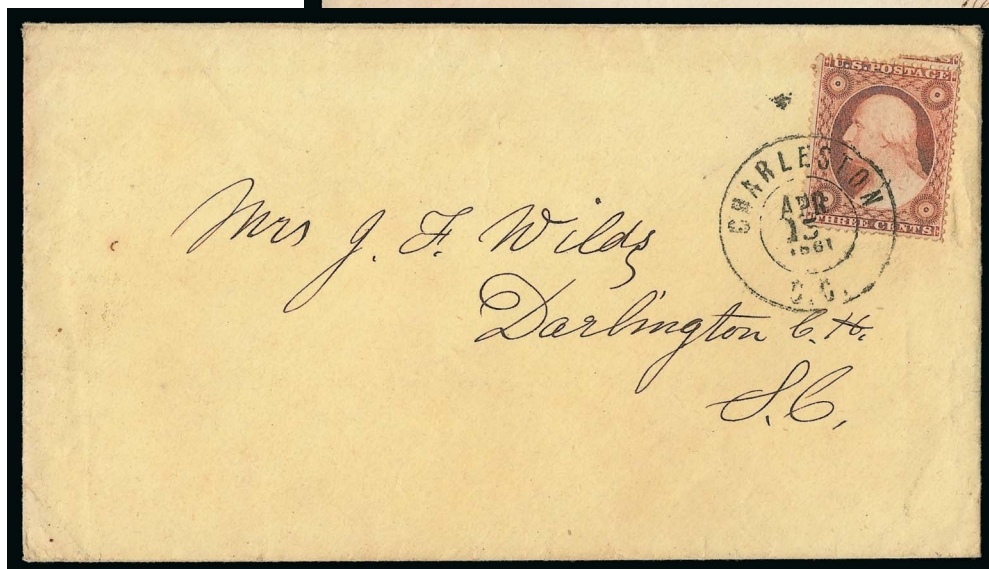 U.S. POSTAGE
THREE CENTS
CHARLESTON
APR
13
1861
S.C.
Mrs J. F. Wilds
Darlington C. H.
S. C.